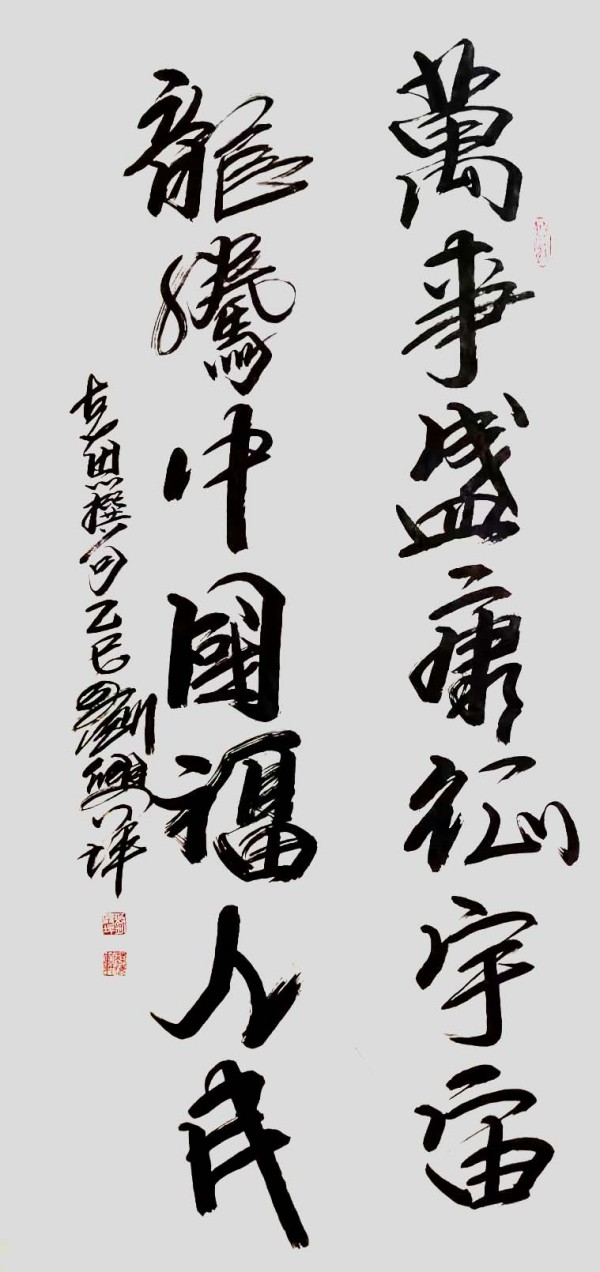 萬事盛康征宇宙
龍騰中國福人民
克思撰句乙巳劉興洋